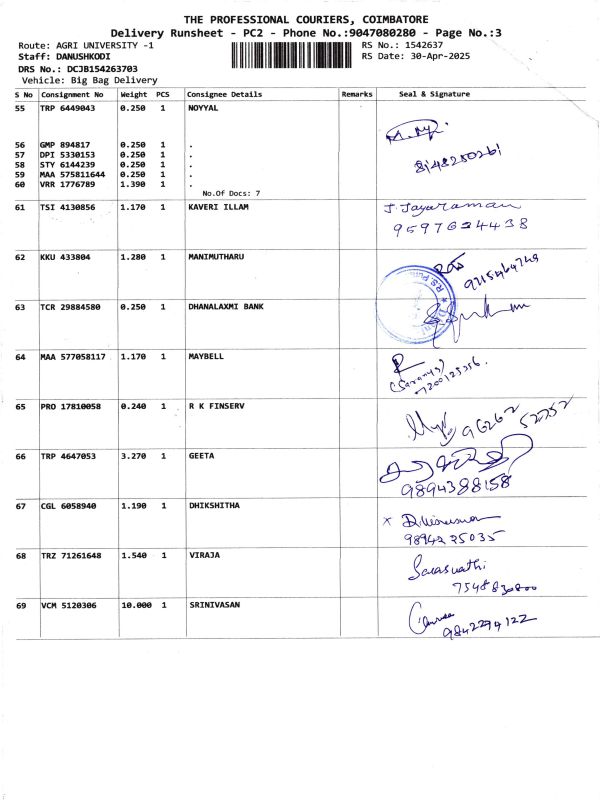 THE PROFESSIONAL COURIERS, COIMBATORE
Delivery Runsheet - PC2 - Phone No.:9047080280 - Page No.:3
Route: AGRI UNIVERSITY -1 RS No.: 1542637
Staff: DANUSHKODI RS Date: 30-Apr-2025
DRS No.: DCJB154263703
Vehicle: Big Bag Delivery
S No Consignment No Weight PCS Consignee Details Remarks Seal & Signature
55 TRP 6449043 0.250 1 NOYYAL
56 GMP 894817 0.250 1 .
57 DPI 5330153 0.250 1 .
58 STY 6144239 0.250 1 .
59 MAA 575811644 0.250 1 .
60 VRR 1776789 1.390 1 .
8148250261
No.Of Docs: 7
61 TSI 4130856 1.170 1 KAVERI ILLAM J. Jayaraman
9597634438
62 KKU 433804 1.280 1 MANIMUTHARU
63 TCR 29884580 0.250 1 DHANALAXMI BANK
64 MAA 577058117 1.170 1 MAYBELL
(Saranya)
7200125356.
65 PRO 17810058 0.240 1 R K FINSERV
96262 52752
66 TRP 4647053 3.270 1 GEETA
9894388158
67 CGL 6058940 1.190 1 DHIKSHITHA
9894225035
68 TRZ 71261648 1.540 1 VIRAJA Saraswathi
7548830800
69 VCM 5120306 10.000 1 SRINIVASAN
9842294122